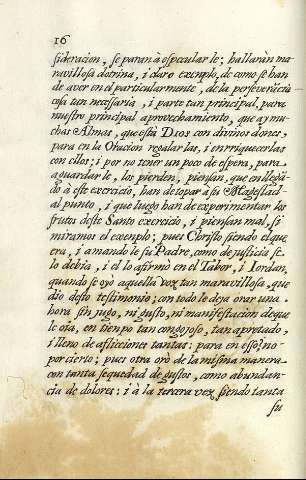 16
sideracion, se paran à especular le; hallaràn ma-
ravillosa dotrina, i claro exemplo, de como se han
de aver en el particularmente, de la perseverãcia
cosa tan necessaria, i parte tan principal, para
nuestro principal aprovechamiento, que ay mu-
chas Almas, que està DIOS con divinos dones,
para en la Oracion regalar las, i enrriquecerlas
con ellos; i por no tener un poco de espera, para
aguardar le, los pierden, piensan, que en llegã-
do à este exercicio, han de topar à su Magestad
al punto, i que luego han de experimentar los
frutos deste Santo exercicio, i piensan mal, si
miramos el exemplo; pues Christo siendo el que
era, i amando le su Padre, como de justicia se
lo debia, i el lo afirmò en el Tabor, i Iordan,
quando se oyò aquella voz tan maravillosa, que
dio deste testimonio; con todo le deja orar una
hora sin jugo, ni gusto, ni manifestacion de que
le oìa, en tiempo tan congojoso, tan apretado,
i lleno de aflicciones tantas: para en esso? no
por cierto; pues otra orò de la misma manera
con tanta sequedad de gustos, como abundan-
cia de dolores: i à la tercera vez siendo tanta
su